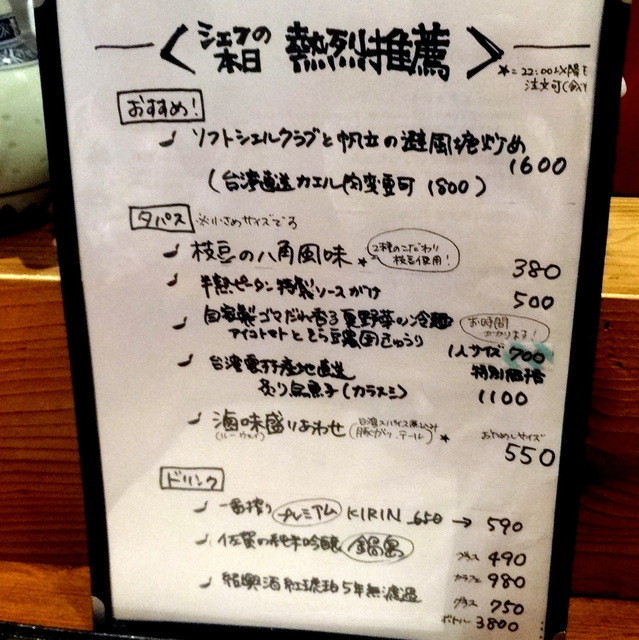 シェフの
本日 熱烈推薦
★=22:00以降も
注文可(食べ
おすすめ!
ソフトシェルクラブと帆立の避風塘炒め
1600
(台湾直送カエル肉変更可 1800)
タパス ※小さめサイズです
枝豆の八角風味★ 2種のこだわり
枝豆使用!
380
半熟ピータン特製ソースがけ
500
自家製ゴマだれ香る夏野菜の冷麺 お時間
かかります!
アイコトマトととうもろこしきゅうり 1人サイズ 700
台湾雲林産地直送 特別価格
炙り烏魚子(カラスミ) 1100
滷味盛りあわせ
(ルーウェイ)
おためしサイズ
550
ドリンク
一番搾り プレミアム KIRIN 650 → 590
佐賀の純米吟醸 鍋島 グラス 490
カラフェ 980
紹興酒 紅琥珀5年無濾過 グラス 750
ボトル 3800